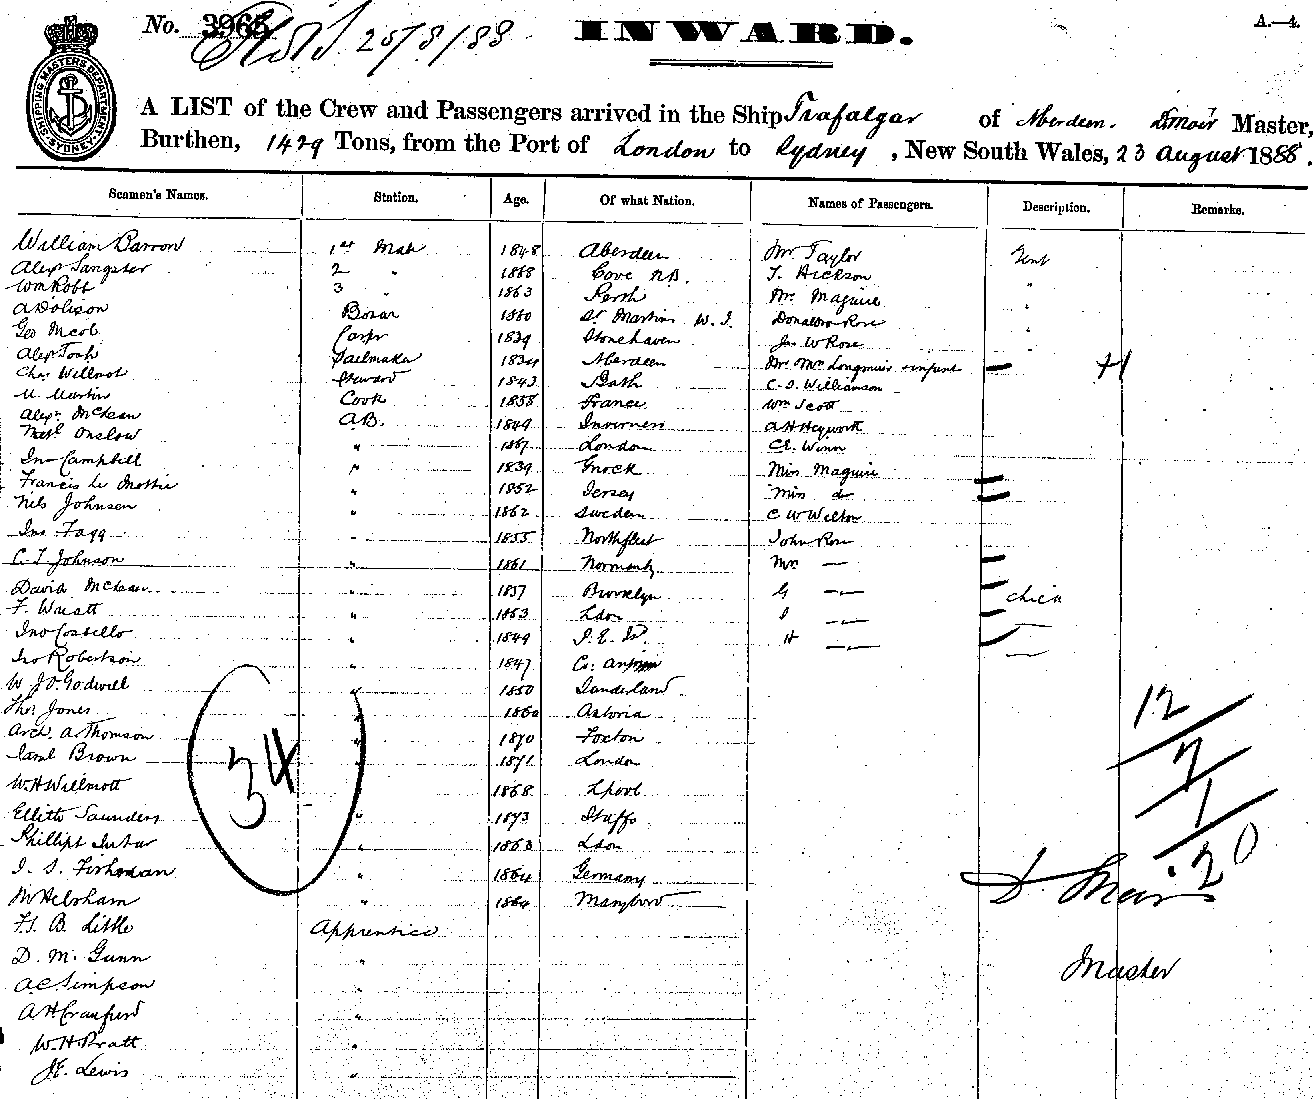 No. 3965 25/8/88 INWARD. A.—4.
SHIPPING MASTERS DEPARTMENT SYDNEY
A LIST of the Crew and Passengers arrived in the Ship Trafalgar of Aberdeen. D Muir Master,
Burthen, 1429 Tons, from the Port of London to Sydney, New South Wales, 23 August 1888.
Seamen's Names. Station. Age. Of what Nation. Names of Passengers. Description. Remarks.
William Barron 1st Mate 1848 Aberdeen Mr Taylor Gent
Alexr Sangster 2 " 1868 Cove N.B. T. Hickson "
Wm Robb 3 " 1863 Perth Mr Maguire "
Bosun 1860 St Martins W.I. Donaldson Rose "
Geo Carpr 1829 Stonehaven Jas W Rose "
Alexr Tosh Sailmaker 1834 Aberdeen Mr Mrs Longmuir + infant
Chas Willmot Steward 1843 Bath C. S. Williamson
M Martin Cook 1858 France Wm Scott
Alexr McLean A.B. 1849 Inverness A H Heyworth
Natl Onslow " 1867 London CE. Winn
Jno Campbell " 1839 Miss Maguire
Francis Le " 1852 Jersey Miss do
Nils Johnsen " 1862 Sweden C W Welton
Jno Fagg " 1855 Northfleet John Rose
C. T. Johnson " 1861 Normandy Mrs —
David McLean " 1857 Brooklyn G —
F. Wyatt " 1863 Ldon —
Jno Costello " 1849 H —
Jno Robertson " 1847 Co: Antrim
W J O. Godwill " 1850 Sunderland
Thos Jones " 1860 Astoria
Arch. A Thomson " 1870 Foxton
Saml Brown " 1871 London
W. H Willmott " 1868 Lpool
34
12
7
1
20
Saunders " 1873 Staffs
" 1863 Ldon
" 1864 Germany
" 1864 Maryboro
D. Muir
B. Little Apprentice
D. M. Gunn "
Master
A C Simpson "
A H Craufurd "
W. H Pratt "
J E. Lewis "